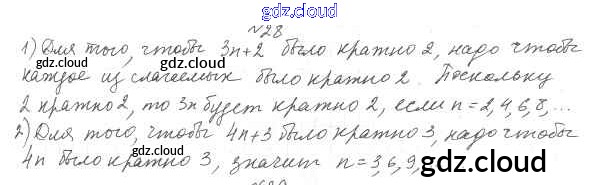 gdz.cloud
№28
1) Для того, чтобы 3n+2 было кратно 2, надо чтобы
gdz.cloud gdz.cloud
каждое из слагаемых было кратно 2. Поскольку
2 кратно 2, то 3n будет кратно 2, если n=2,4,6,8,...
gdz.cloud gdz.cloud
2) Для того, чтобы 4n+3 было кратно 3, надо чтобы
4n было кратно 3, значит n=3,6,9,
gdz.cloud gdz.cloud